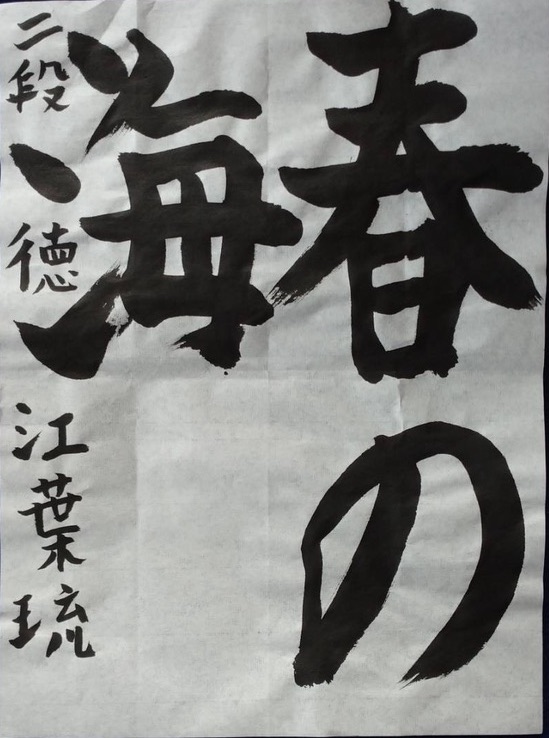 春の
海
二段 徳江葉琉